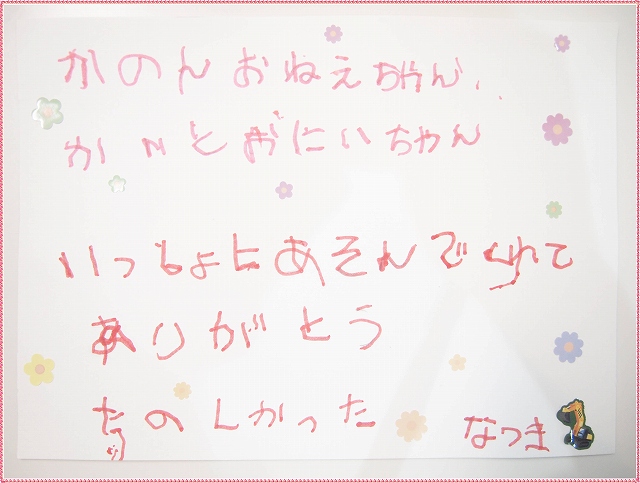 かのんおねえちゃん、、
かいとおにいちゃん
いっしょにあそんでくれて
ありがとう
たのしかった なつき